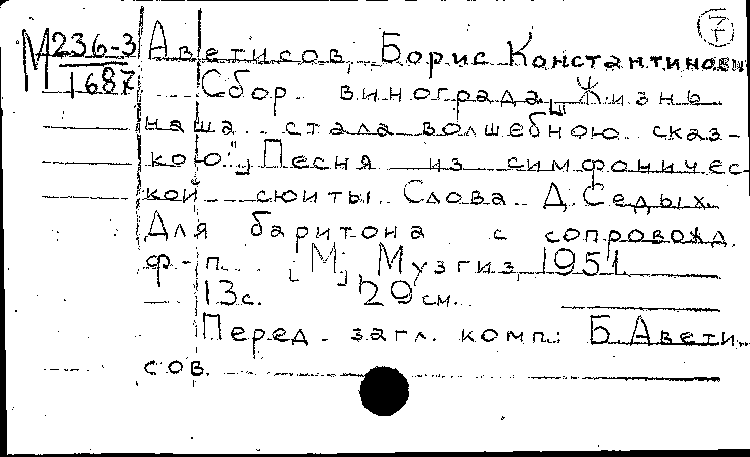 7
М 236-3 Аветисов, Борис Константинови
1687 Сбор винограда „Жизнь
наша стала волшебною сказ-
кою". Песня из симфоничес-
кой сюиты. Слова Д. Седых.
Для баритона с сопровожд.
ф-п. [М], Музгиз, 1951.
13с. 29 см.
Перед загл. комп.: Б. Авети-
сов.